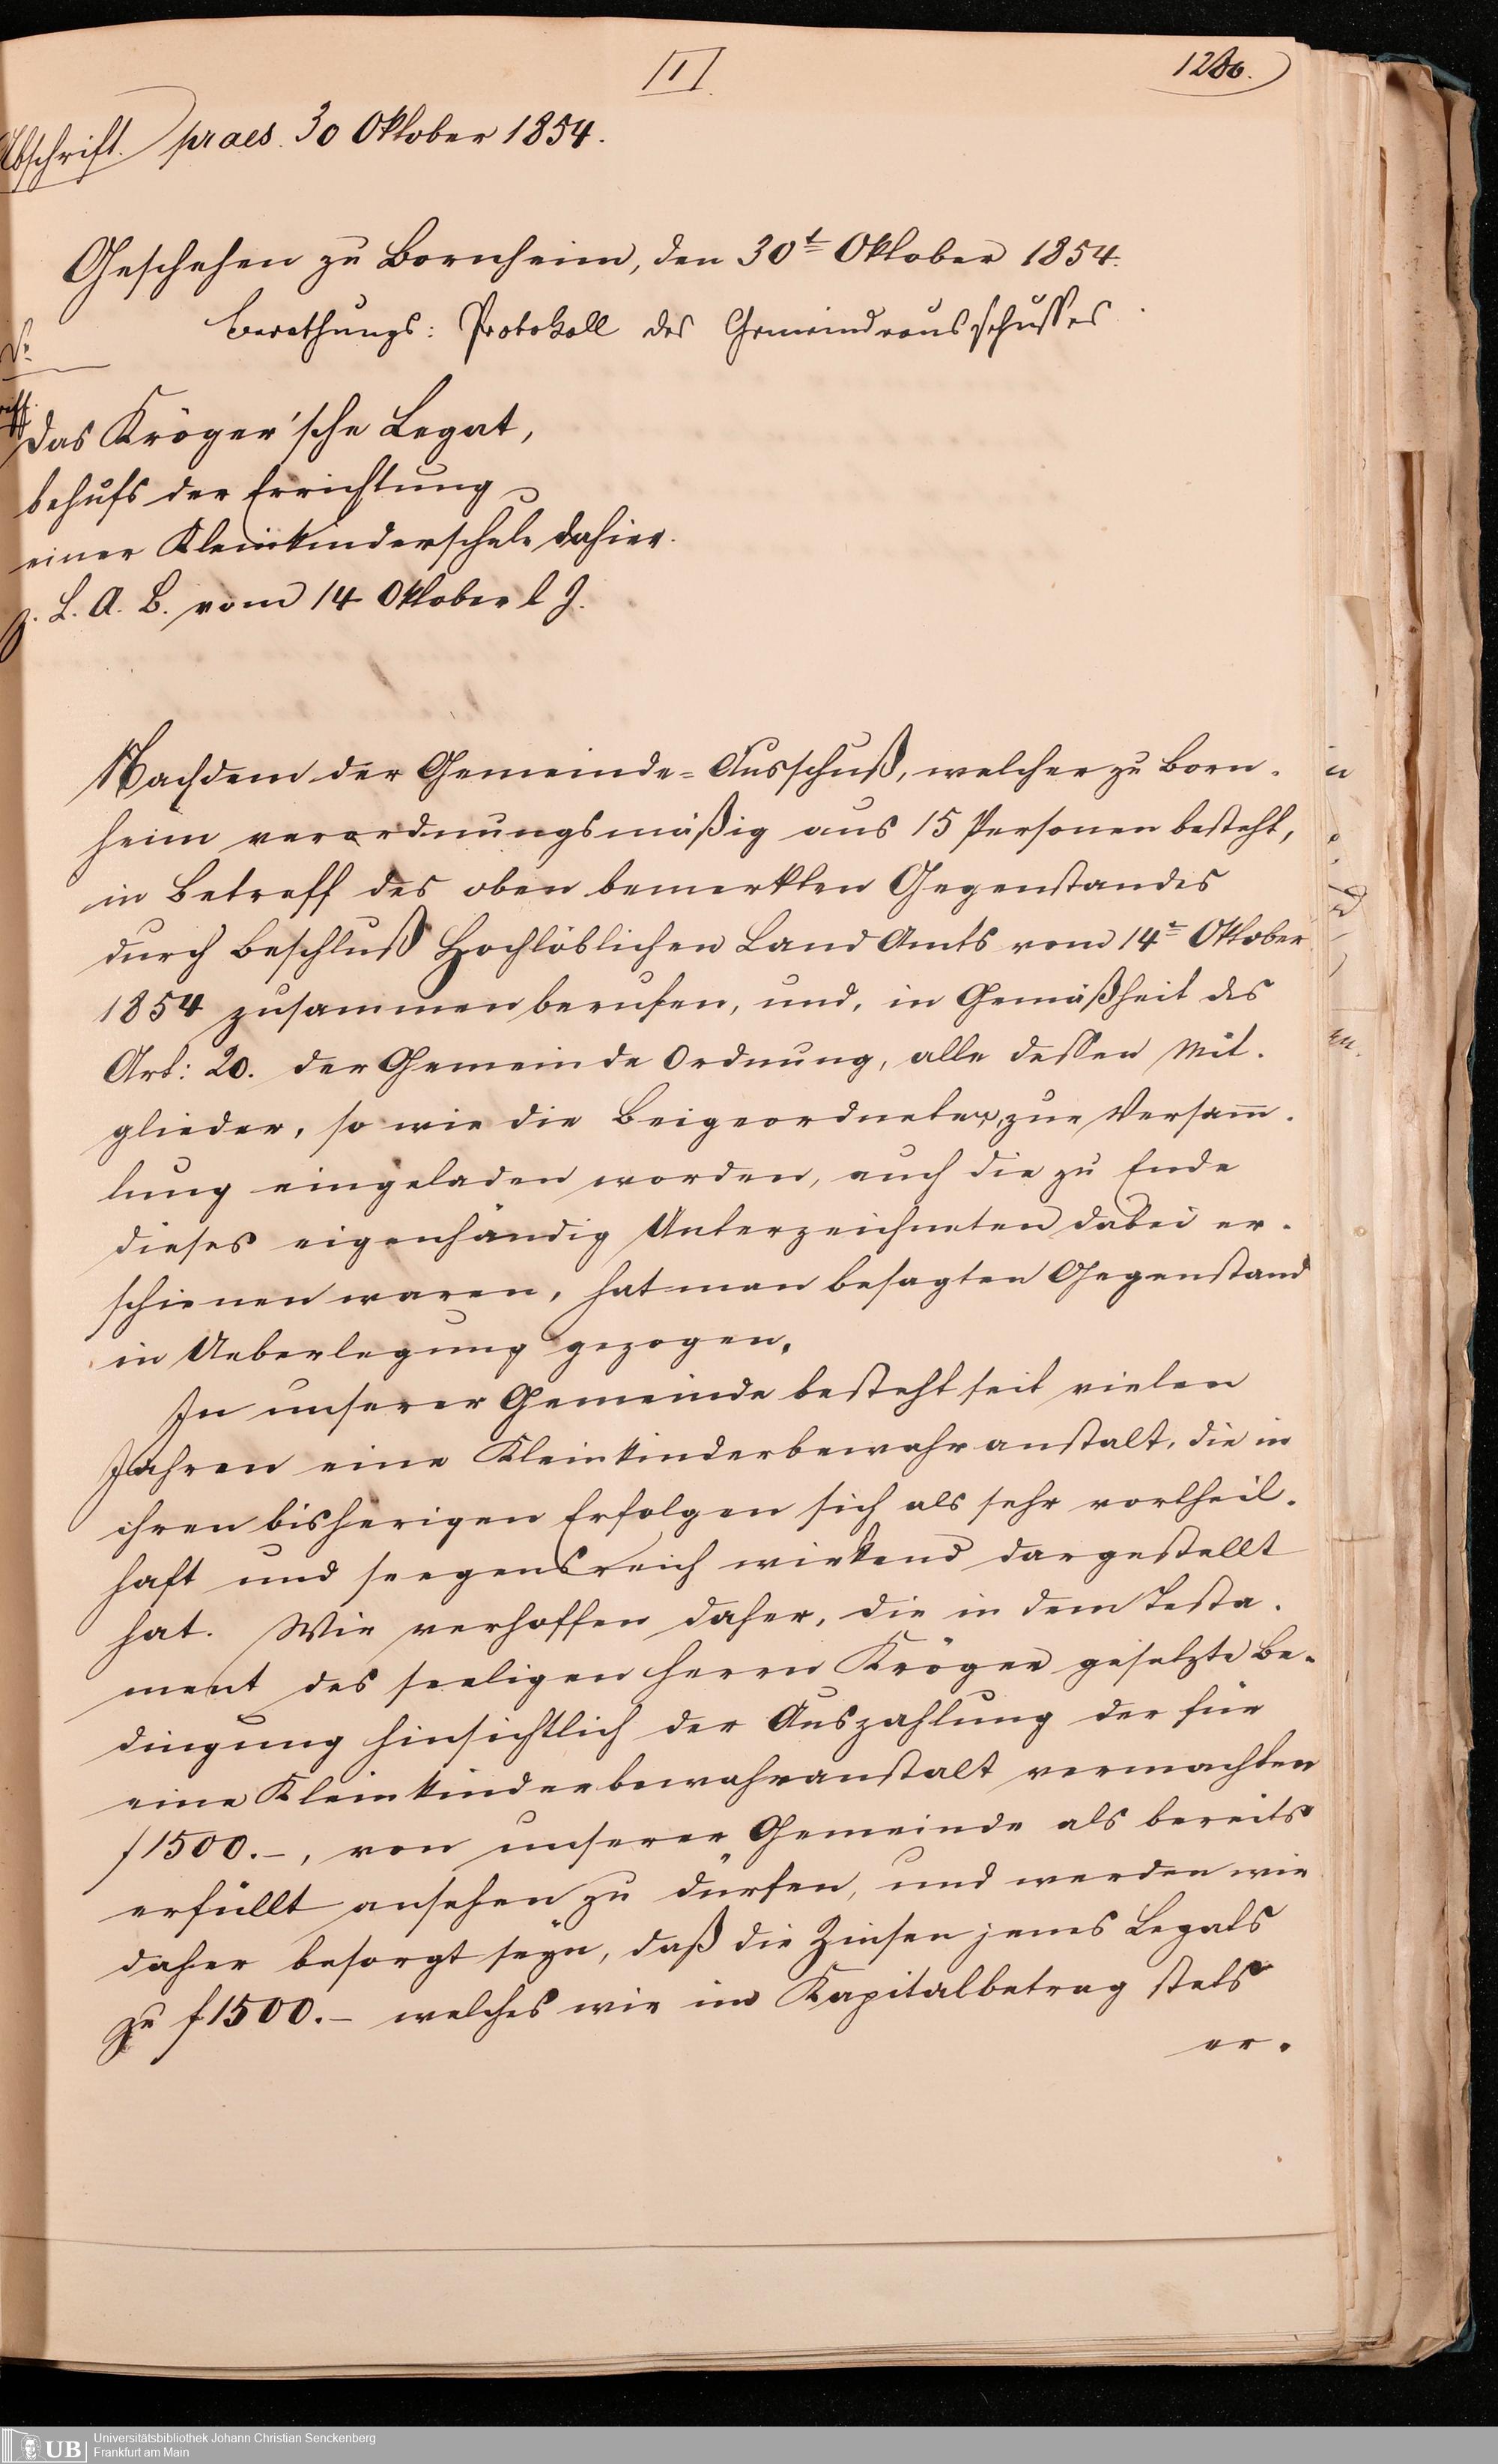 I
Abschrift. praes. 30 Oktober 1854.
Geschehen zu Bornheim, den 30t Oktober 1854.
Berathungs: Protokoll des Gemeindeausschusses
das Kröger'sche Legat,
behufs der Errichtung
einer Kleinkinderschule dahier.
z. L. A. B. vom 14 Oktober l J.
Nachdem der Gemeinde-Ausschuß, welcher zu Born-
heim verordnungsmäßig aus 15 Personen besteht,
in Betreff des oben bemerkten Gegenstandes
durch Beschluß Hochlöblichen Land Amts vom 14t Oktober
1854 zusammenberufen, und, in Gemäßheit des
Art: 20. der Gemeinde Ordnung, alle dessen Mit-
glieder, so wie die Beigeordneten, zur Versam̅-
lung eingeladen worden, auch die zu Ende
dieses eigenhändig Unterzeichneten dabei er-
schienen waren, hat man besagten Gegenstand
in Ueberlegung gezogen.
In unserer Gemeinde besteht seit vielen
Jahren eine Kleinkinderbewahranstalt, die in
ihren bisherigen Erfolgen sich als sehr vortheil-
haft und seegensreich wirkend dargestellt
hat. Wir verhoffen daher, die in dem Testa-
ment des seeligen Herrn Kröger gesetzte Be-
dingung hinsichtlich der Auszahlung der für
eine Kleinkinderbewahranstalt vermachten
f 1500.-, von unserer Gemeinde als bereits
erfüllt ansehen zu dürfen, und werden wir
daher besorgt seÿn, daß die Zinsen jenes Legats
zu f 1500.- welches wir im Kapitalbetrag stets
er-
UB
Universitätsbibliothek Johann Christian Senckenberg
Frankfurt am Main